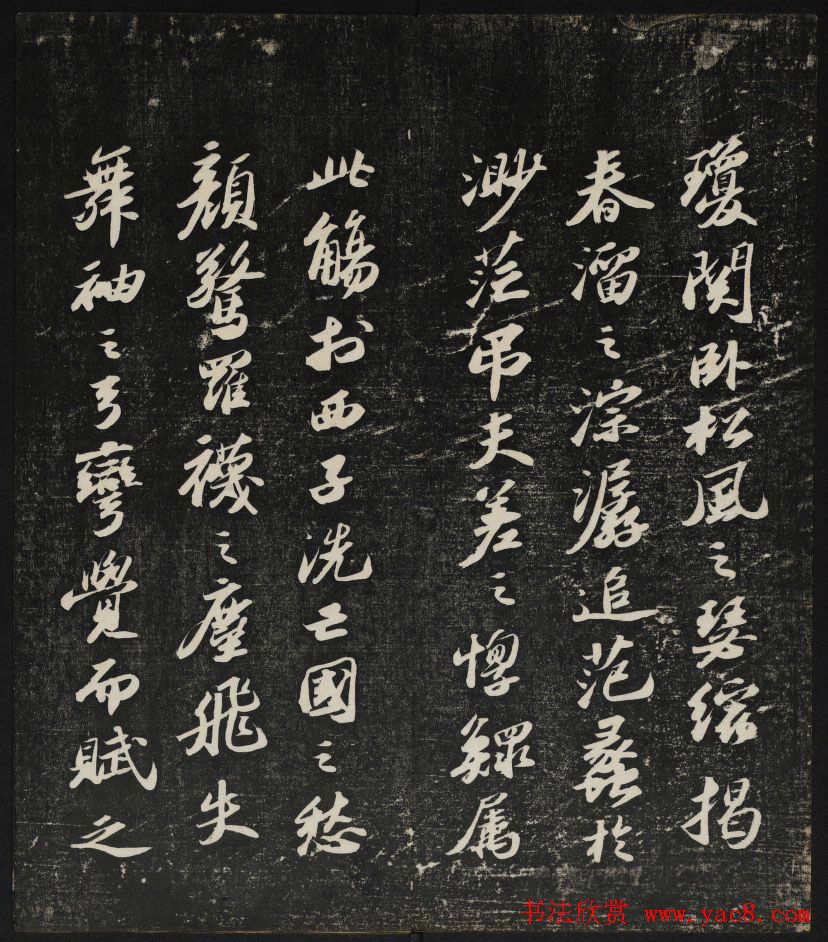 瓊関卧松風之瑟縮揭
春溜之淙潺追范蠡於
渺茫吊夫差之惸鰥属
此觴於西子洗亡國之愁
顏驚羅襪之塵飛失
舞袖之弓彎覺而賦之
书法欣赏 www.yac8.com